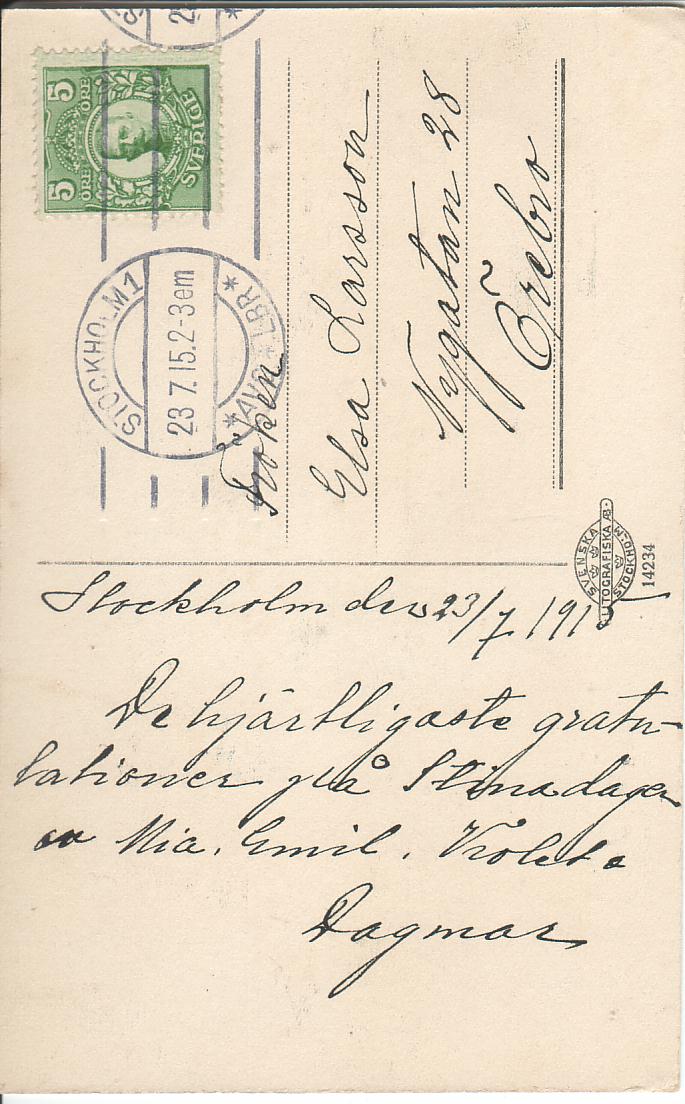 5 5
ÖRE ÖRE
SVERIGE
STOCKHOLM 1
23 7.15.2-3em
*AVG*LBR*
Fröken
Elsa Larsson
Nygatan 28
Örebro
SVENSKA
LITOGRAFISKA AB.
STOCKHOLM
14234
Stockholm den 23/7 1915
De hjärtligaste gratu-
lationer på Stinadagen
av Mia. Emil. Violet o
Dagmar